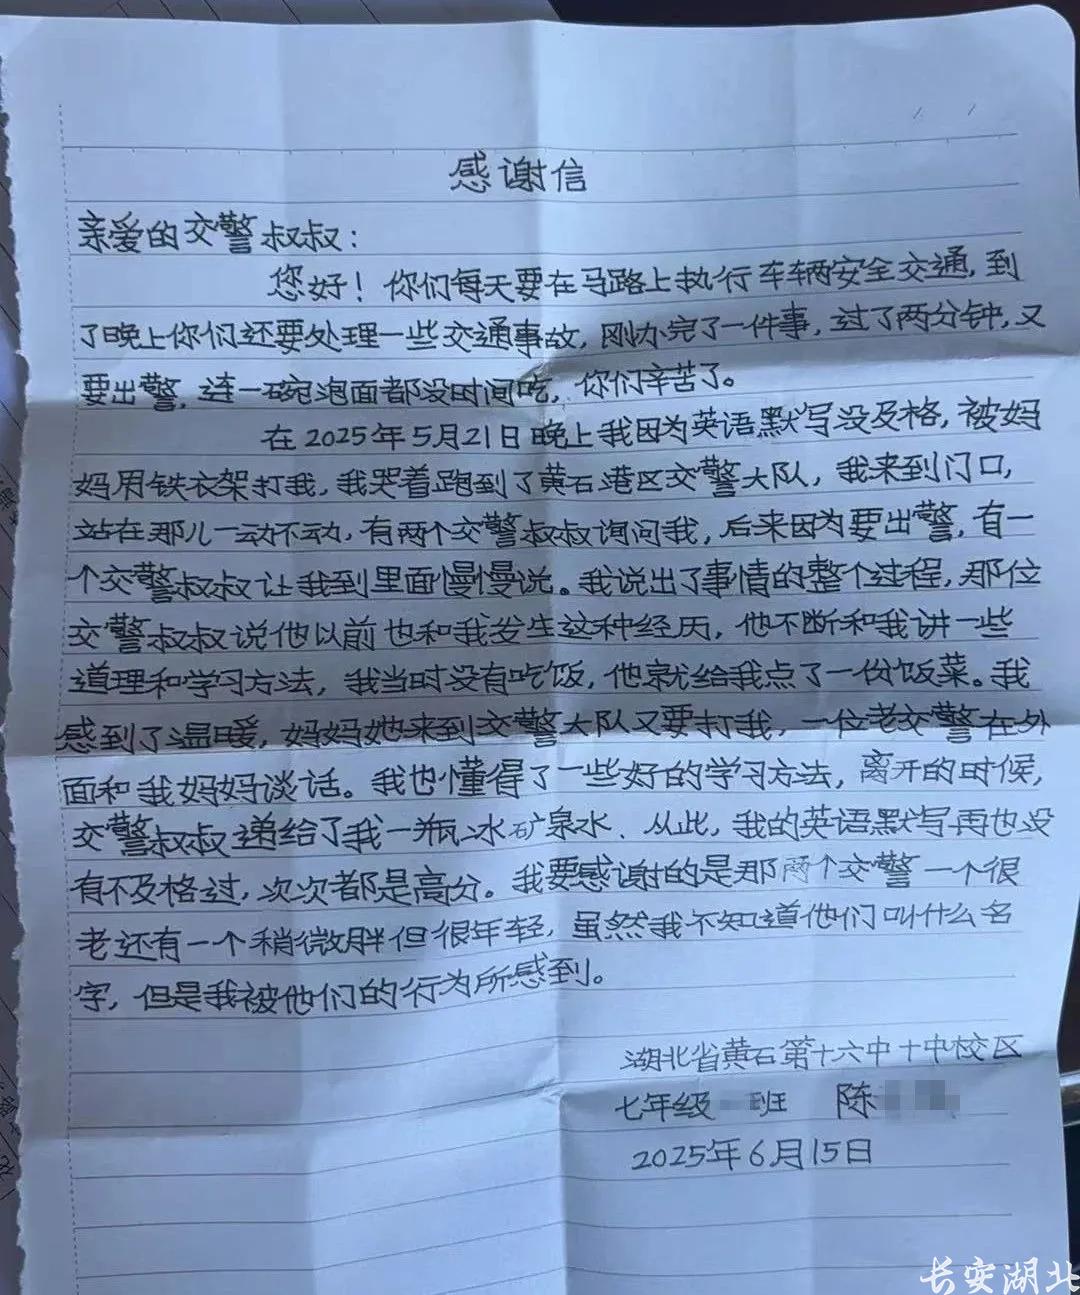 感谢信
亲爱的交警叔叔：
您好！你们每天要在马路上执行车辆安全交通，到
了晚上你们还要处理一些交通事故，刚办完了一件事，过了两分钟，又
要出警，连一碗泡面都没时间吃，你们辛苦了。
在2025年5月21日晚上我因为英语默写没及格，被妈
妈用铁衣架打我，我哭着跑到了黄石港区交警大队，我来到门口，
站在那儿一动不动，有两个交警叔叔询问我，后来因为要出警，有一
个交警叔叔让我到里面慢慢说。我说出了事情的整个过程，那位
交警叔叔说他以前也和我发生这种经历，他不断和我讲一些
道理和学习方法，我当时没有吃饭，他就给我点了一份饭菜。我
感到了温暖，妈妈她来到交警大队又要打我，一位老交警在外
面和我妈妈谈话。我也懂得了一些好的学习方法，离开的时候，
交警叔叔递给了我一瓶冰矿泉水、从此，我的英语默写再也没
有不及格过，次次都是高分。我要感谢的是那两个交警一个很
老还有一个稍微胖但很年轻，虽然我不知道他们叫什么名
字，但是我被他们的行为所感到。
湖北省黄石第十六中十中校区
七年级 班 陈
2025年6月15日
长安湖北